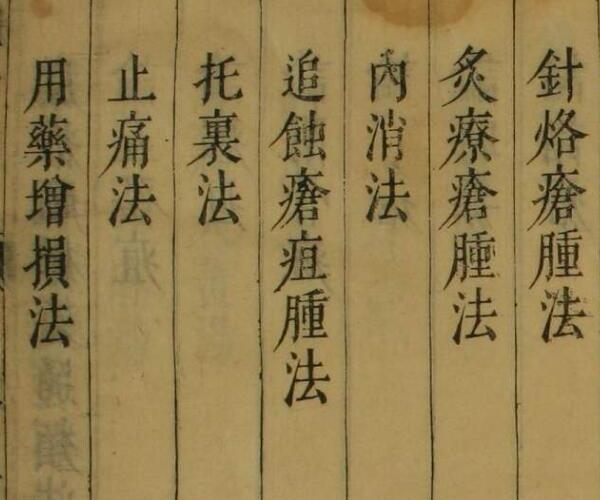 針烙瘡腫法
灸療瘡腫法
內消法
追蝕瘡疽腫法
托裏法
止痛法
用藥增損法